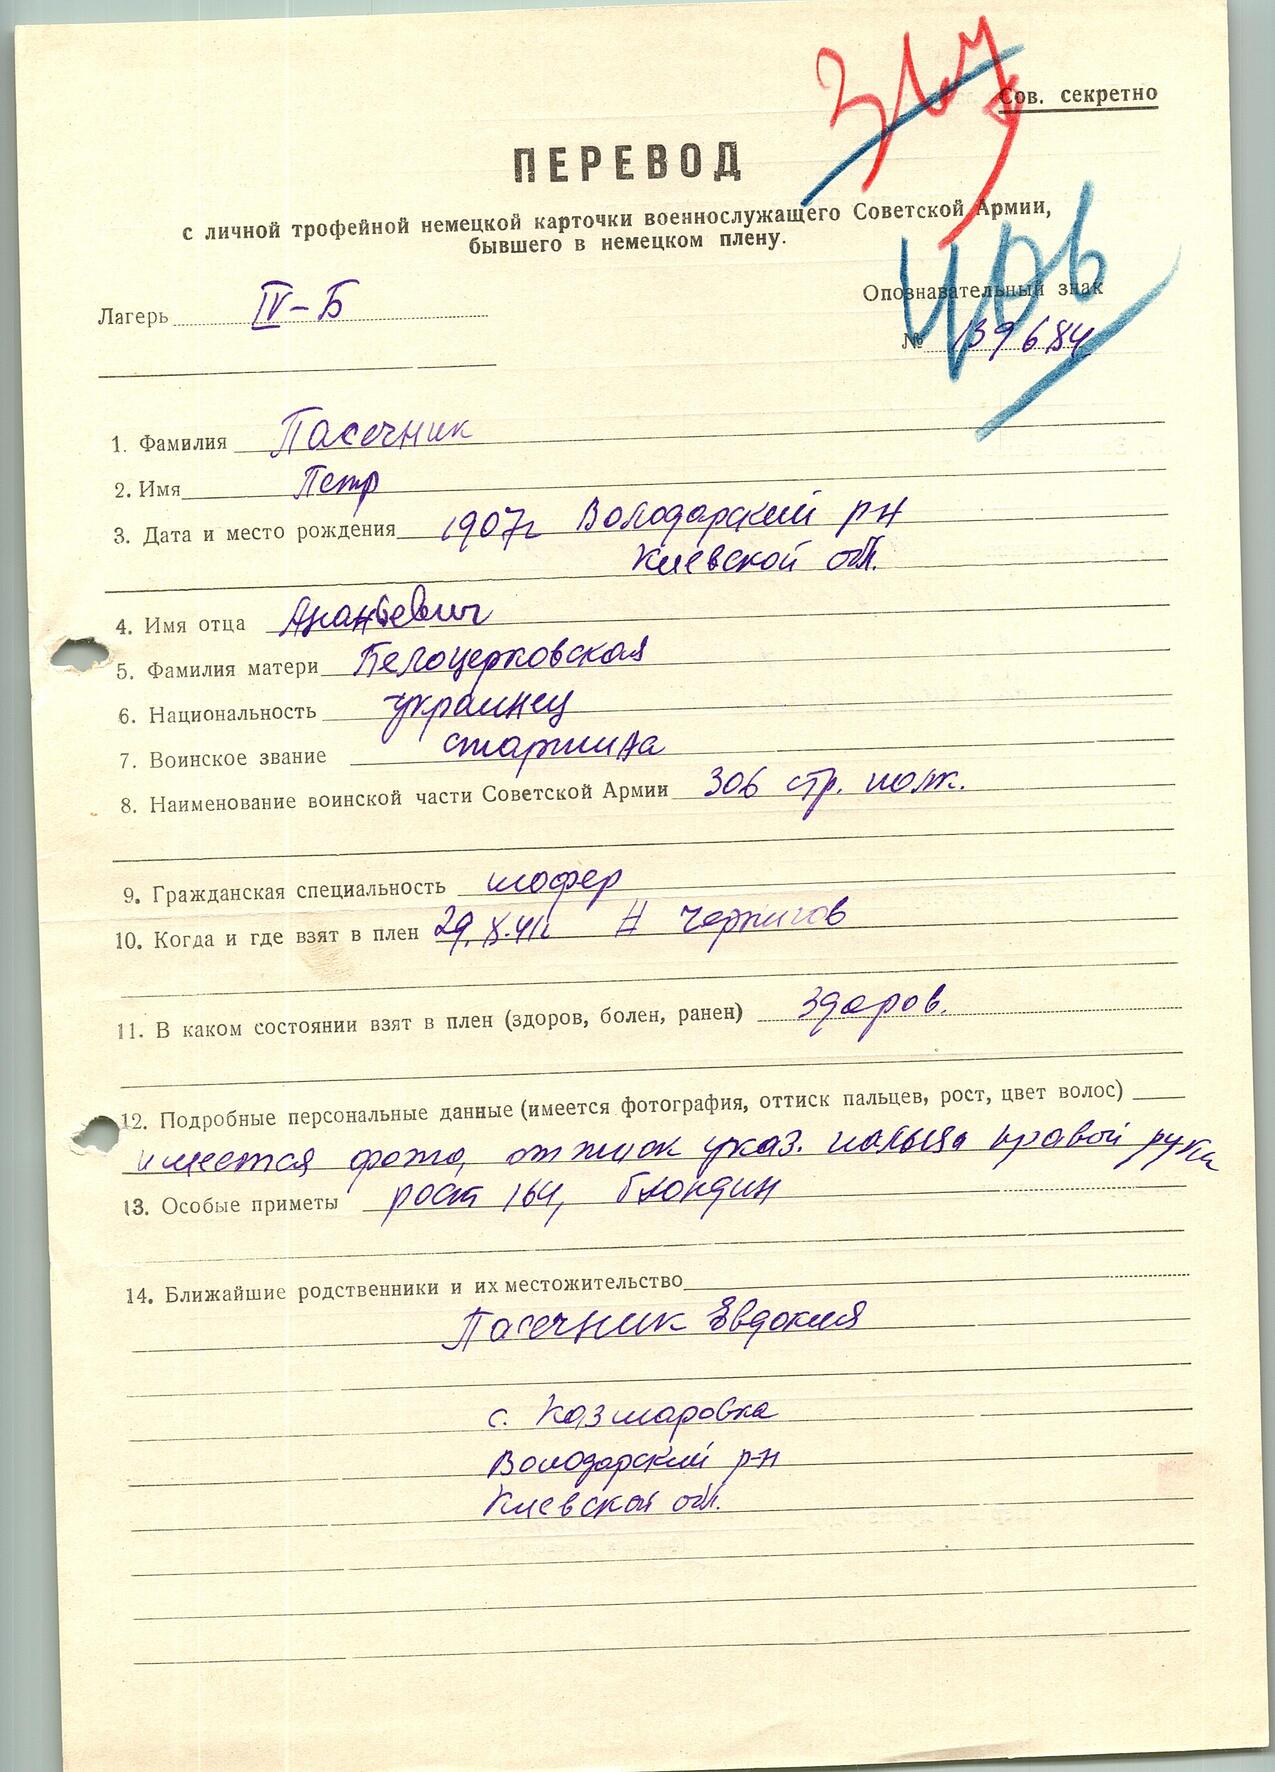 Сов. секретно
ПЕРЕВОД
с личной трофейной немецкой карточки военнослужащего Советской Армии,
бывшего в немецком плену.
Лагерь IV-Б
Опознавательный знак
№ 139684
1. Фамилия Пасечник
2. Имя Петр
3. Дата и место рождения 1907г Володарский р-н
Киевской обл.
4. Имя отца Ананьевич
5. Фамилия матери Белоцерковская
6. Национальность украинец
7. Воинское звание старшина
8. Наименование воинской части Советской Армии 306 стр. полк.
9. Гражданская специальность шофер
10. Когда и где взят в плен 29.X.41г Чернигов
11. В каком состоянии взят в плен (здоров, болен, ранен) здоров.
12. Подробные персональные данные (имеется фотография, оттиск пальцев, рост, цвет волос)
имеется фото, оттиск указ. пальца правой руки
13. Особые приметы рост 164, блондин
14. Ближайшие родственники и их местожительство
Пасечник Евдокия
с.
Володарский р-н
Киевской обл.